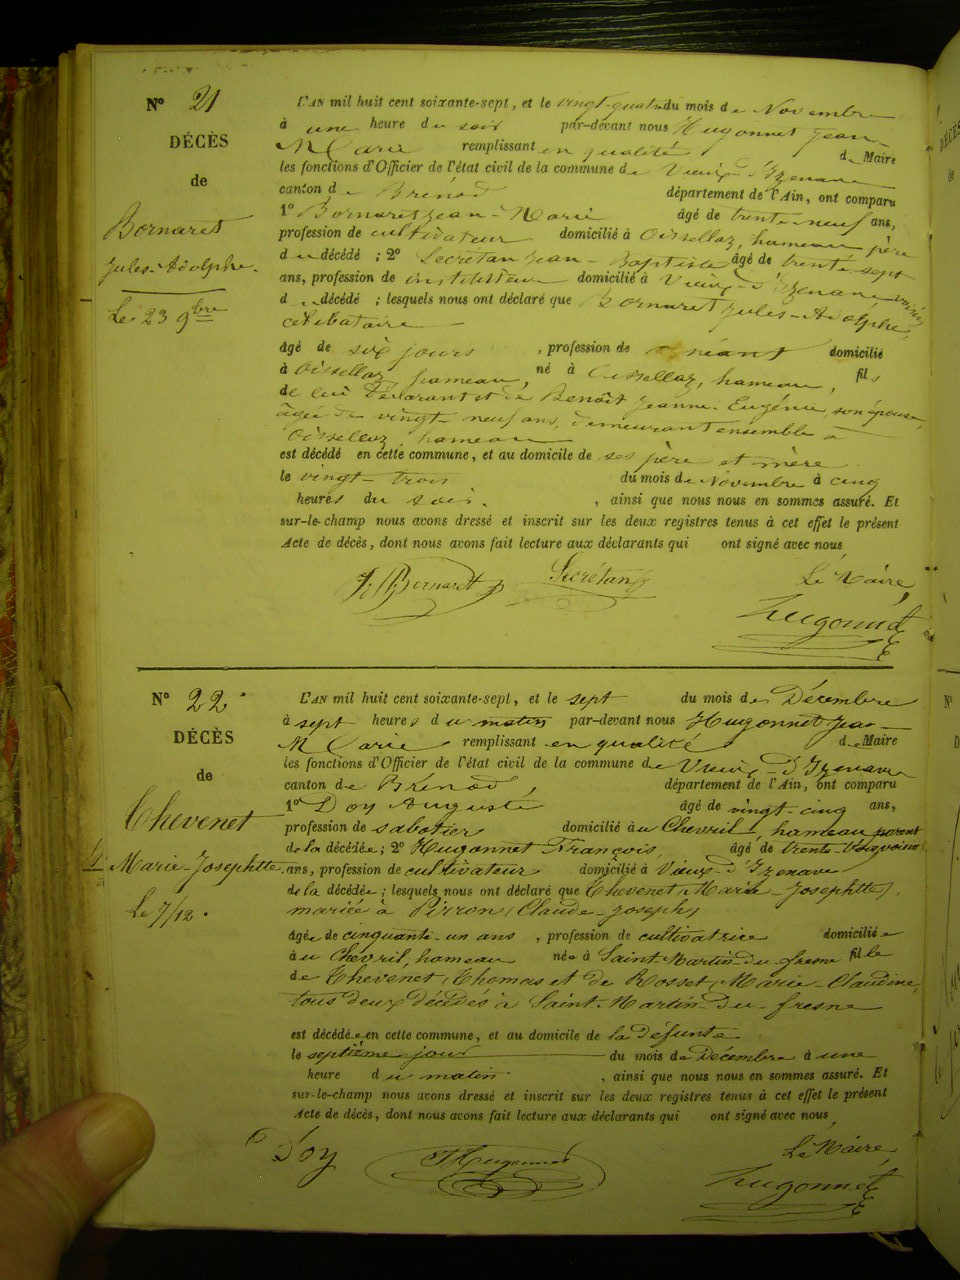 N° 21
DÉCÈS
de
Bornaret
Jules-Adolphe.
Le 23 9bre
L'AN mil huit cent soixante-sept, et le vingt-quatre du mois de Novembre
à une heure du soir par-devant nous Hugonnet Jean
Marie remplissant en qualité de Maire
les fonctions d'Officier de l'état civil de la commune de Vieux-d'Izenave
canton de Brénod département de l'Ain, ont comparu
1° Bornaret Jean-Marie âgé de trente-neuf ans,
profession de cultivateur domicilié à Oisellaz, hameau, père
du décédé ; 2° Secrétan Jean-Baptiste âgé de trente-sept
ans, profession de instituteur domicilié à Vieux-d'Izenave voisin
du décédé ; lesquels nous ont déclaré que Bornaret Jules-Adolphe,
célibataire
âgé de six jours , profession de néant domicilié
à Oisellaz, hameau, né à Oisellaz, hameau, fils
de lui déclarant et de Benoît Jeanne-Eugénie, son épouse,
âgée de vingt-neuf ans, demeurant ensemble à
Oisellaz, hameau
est décédé en cette commune, et au domicile de ses père et mère
le vingt-trois du mois de Novembre à cinq
heures du soir. , ainsi que nous nous en sommes assuré. Et
sur-le-champ nous avons dressé et inscrit sur les deux registres tenus à cet effet le présent
Acte de décès, dont nous avons fait lecture aux déclarants qui ont signé avec nous
Bornaret Secrétan Le Maire,
Hugonnet
N° 22
DÉCÈS
de
Chevenet
Marie-Josephtte.
Le 7/12.
L'AN mil huit cent soixante-sept, et le sept du mois de Décembre
à sept heures du matin par-devant nous Hugonnet Jean
Marie remplissant en qualité de Maire
les fonctions d'Officier de l'état civil de la commune de Vieux-d'Izenave
canton de Brénod, département de l'Ain, ont comparu
1° Doy Auguste âgé de vingt-cinq ans,
profession de sabotier domicilié au Chevril, hameau parent
de la décédée; 2° Hugonnet François, âgé de trente-trois voisin
ans, profession de cultivateur domicilié à Vieux-d'Izenave
de la décédée ; lesquels nous ont déclaré que Chevenet (Marie-Josephtte),
mariée à Pirron (Claude-Joseph)
âgée de cinquante-un ans , profession de cultivatrice domiciliée
au Chevril, hameau née à Saint-Martin-du-fresne fille
de Chevenet (Thomas et de Rosset (Marie-Claudine,
tous deux décédés à Saint-Martin-du-fresne
est décédée en cette commune, et au domicile de la défunte
le septième jour du mois de Décembre à une
heure du matin , ainsi que nous nous en sommes assuré. Et
sur-le-champ nous avons dressé et inscrit sur les deux registres tenus à cet effet le présent
Acte de décès, dont nous avons fait lecture aux déclarants qui ont signé avec nous
Doy Hugonnet Le Maire,
Hugonnet